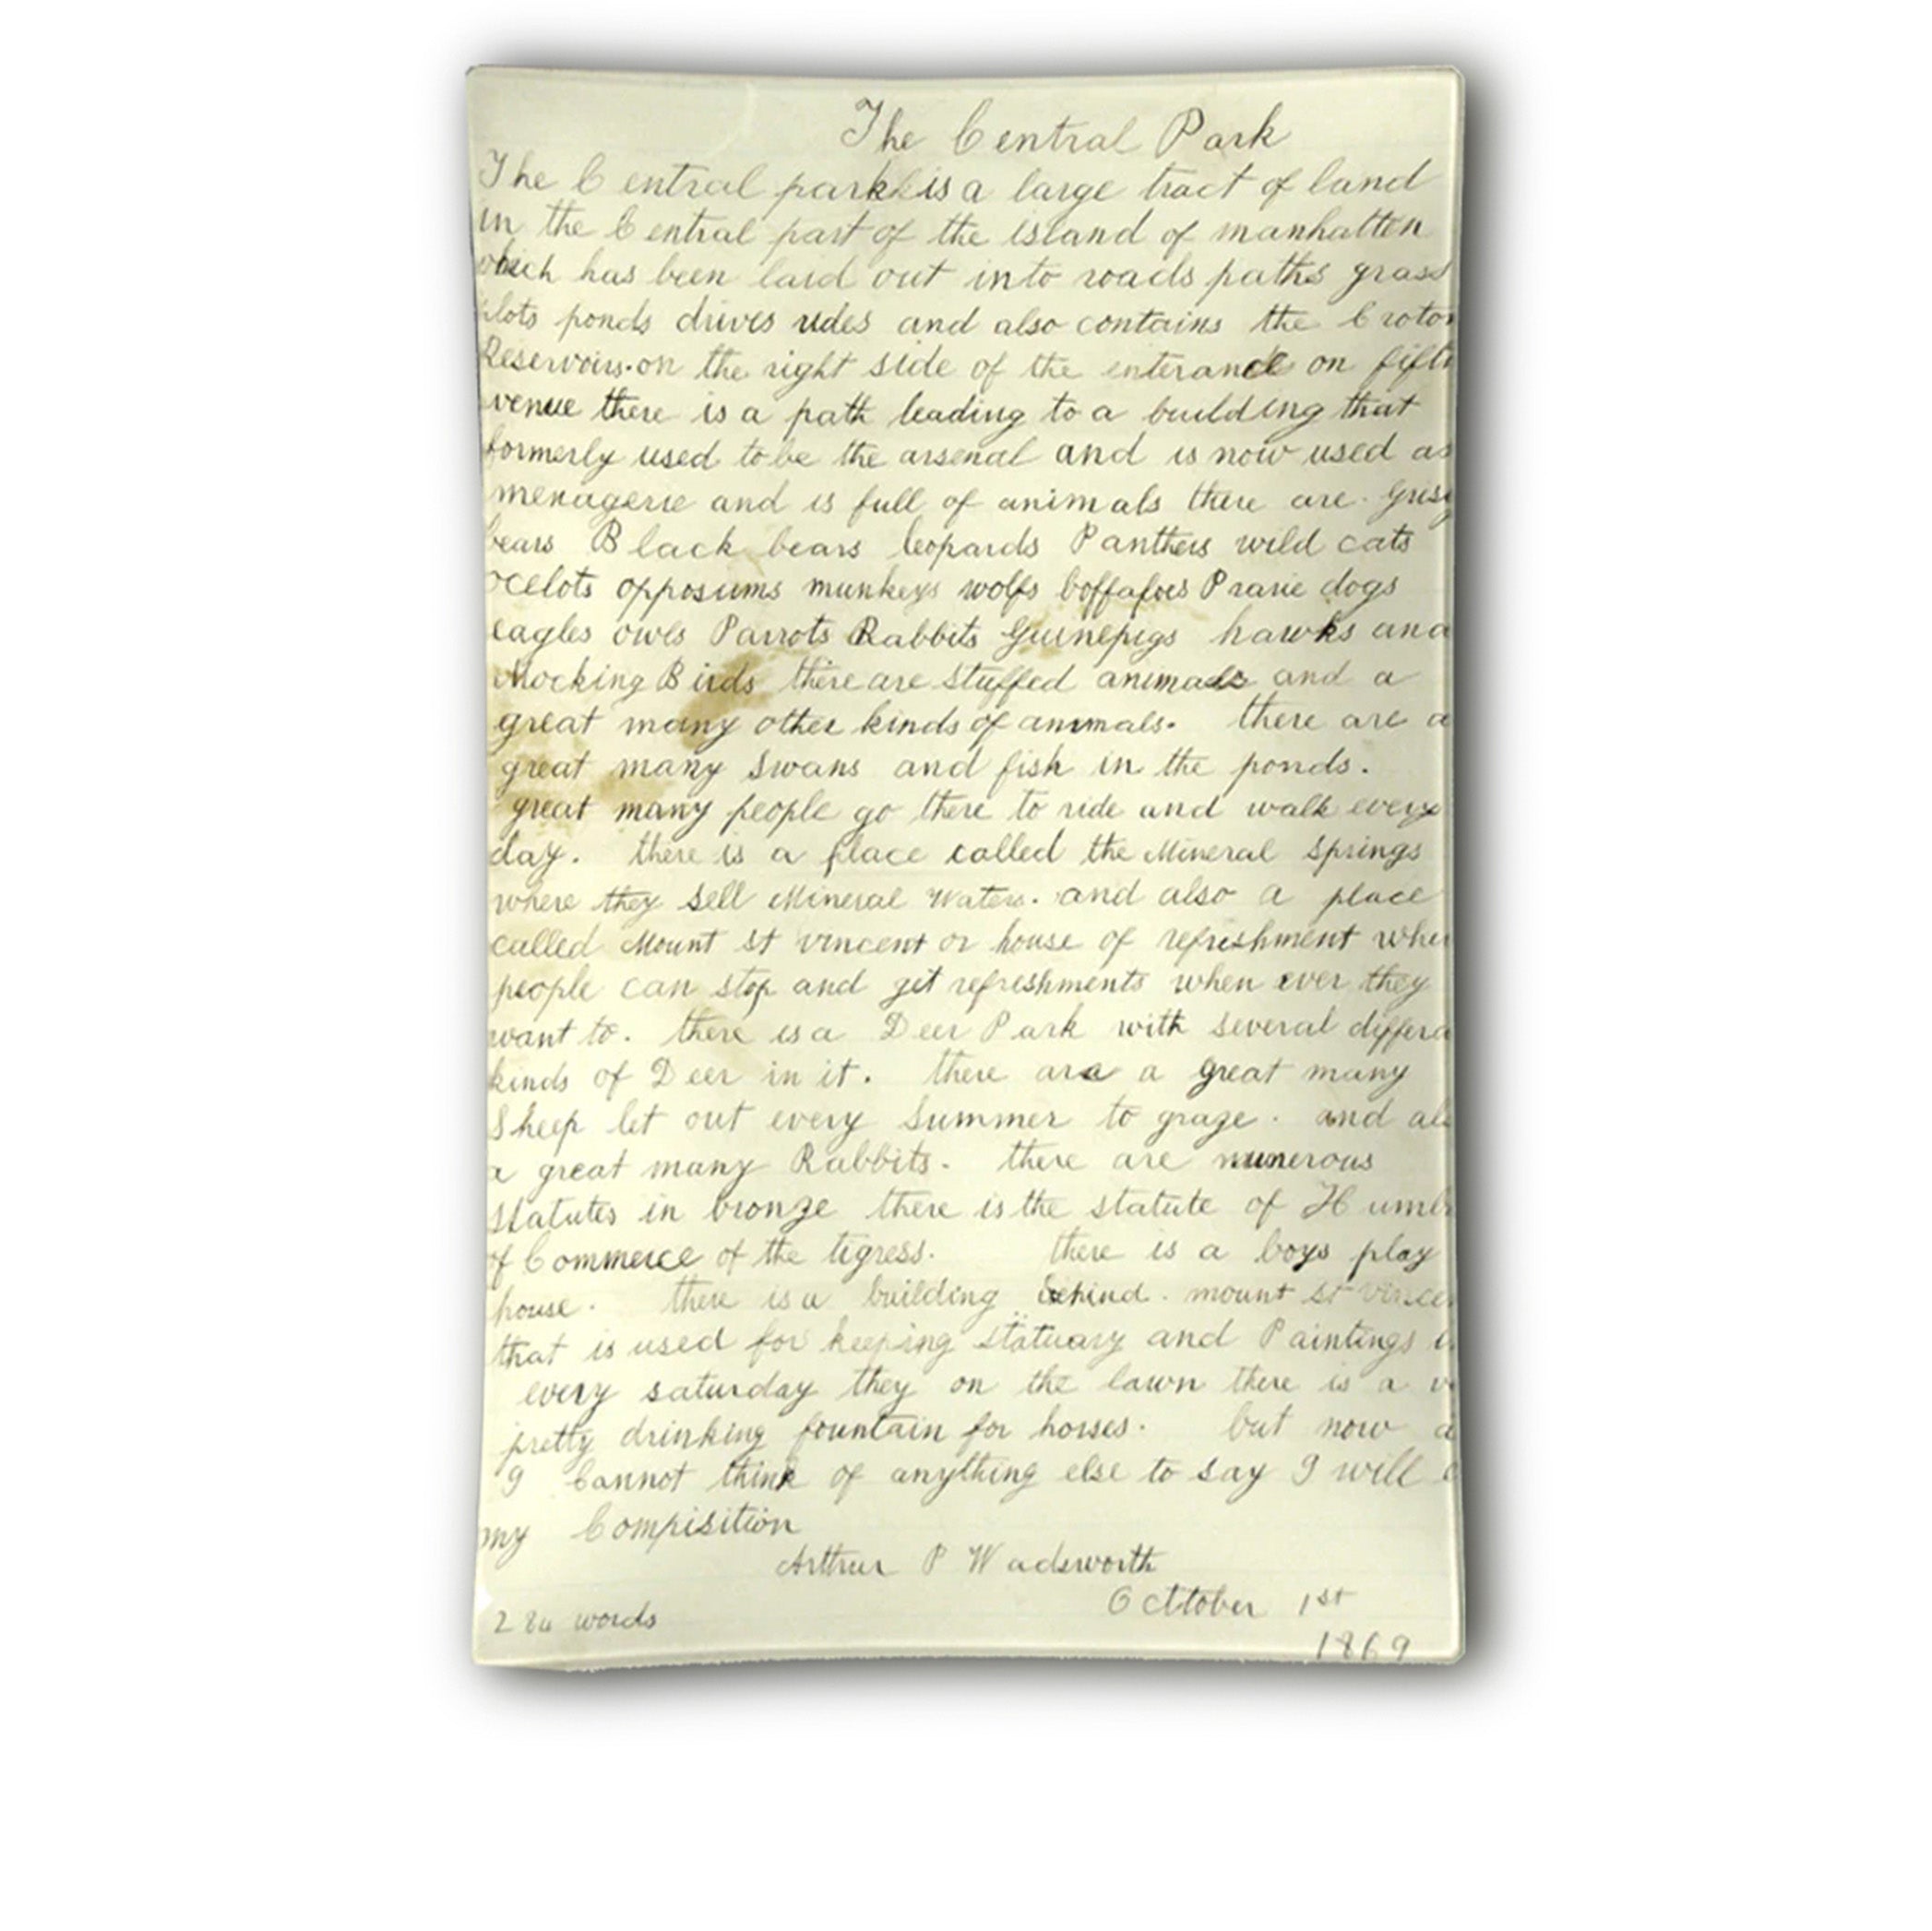 The Central Park
The Central park is a large tract of land
in the Central part of the island of manhatten
which has been laid out into roads paths grass
plots ponds drives rides and also contains the Croton
Reservoirs. on the right side of the enterance on fifth
venue there is a path leading to a building that
formerly used to be the arsenal and is now used as
menagerie and is full of animals there are. Gris
bears Black bears leopards Panthers wild cats
ocelots opposums munkeys wolfs boffaloes Prarie dogs
eagles owls Parrots Rabbits Guinepigs hawks and
Mocking Birds there are stuffed animals and a
great many other kinds of animals. there are a
great many swans and fish in the ponds.
great many people go there to ride and walk every
day. there is a place called the Mineral springs
where they sell Mineral Waters. and also a place
called Mount st vincent or house of refreshment wher
people can stop and get refreshments when ever they
want to. there is a Deer Park with several differa
kinds of Deer in it. there are a great many
Sheep let out every Summer to graze. and als
a great many Rabbits. there are numerous
statutes in bronze there is the statute of Humb
of Commerce of the tigress. there is a boys play
house. there is a building behind. mount st vincen
that is used for keeping statuary and Paintings
every saturday they on the lawn there is a
pretty drinking fountain for horses. but now a
I Cannot think of anything else to say I will
my Compisition
Arthur P Wadsworth
Octtober 1st
words
1869